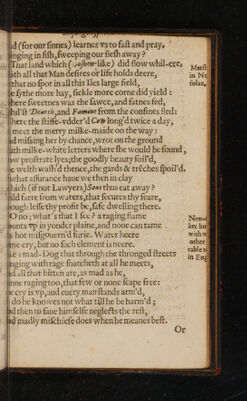 d (for our sinnes) learnes vs to fast and pray.
inging in fish, sweeping our flesh away?
That land which ( -like) did flow whil-ere,
ith all that Man desires or life holds deere,
that no spot in all this Iles large field,
e sythe more hay, sickle more corne did yield:
here sweetnes was the sawce, and fatnes fed,
hil'st Dearth, and Famine from the confines fled:
here the stiffe-vdder'd Cow long'd twice a day,
meet the merry milke-maide on the way:
nd missing her by chance, wrot on the ground
ith milke-white letters where she would be found,
ow prostrate lyes; the goodly beauty soil'd,
e welth wash'd thence, the gards & trēches spoil'd.
what assurance haue we then in clay
hich (if not Lawyers) Seas thus eat away?
ild farre from waters, that secures thy feare,
ough lesse thy profit be, safe dwelling there.
O no; what's that I see? a raging flame
ounts vp in yonder plaine, and none can tame
e hot misgouern'd furie. Water heere
me cry, but no such element is neere.
ke a mad-Dog that through the thronged streets
nging with rage snatcheth at all he meets,
nd all that bitten are, as mad as he,
nne raging too, that few or none scape free:
e cry is vp, and euery man stands arm'd,
do he knowes not what till he be harm'd;
nd then to saue himselfe neglects the rest,
nd madly mischiefe does when he meanes best.
Or
in No
folke.
with
other
table
in Eng